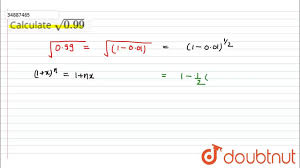 34687465
Calculate √0.99
√0.99 = √(1-0.01) = (1-0.01)^1/2
(1+x)^n = 1+nx = 1-1/2(
doubtnut